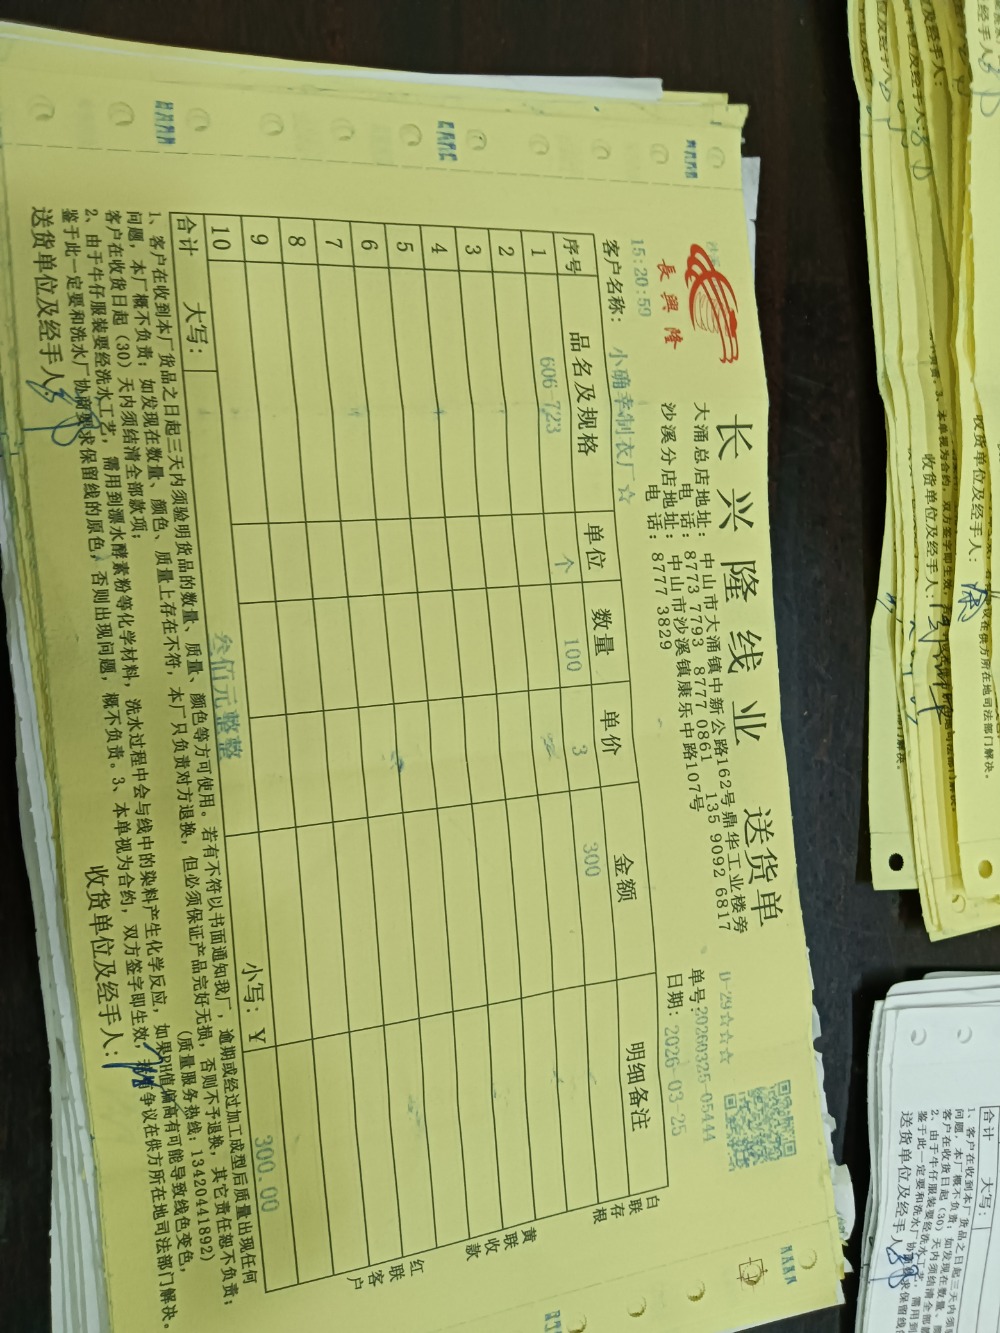 长兴隆线业 送货单
長興隆
大涌总店地址: 中山市大涌镇中新公路162号鼎华工业楼旁
电话: 8773 7793 8777 0861 135 9092 6817
沙溪分店地址: 中山市沙溪镇康乐中路107号
电话: 8777 3829
D-29☆☆☆
单号:20260325-05444
15:20:59
日期: 2026-03-25
客户名称: 小确幸制衣厂☆
序号 品名及规格 单位 数量 单价 金额 明细备注
1 606 723 个 100 3 300
2
3
4
5
6
7
8
9
10
合计 大写: 叁佰元整整 小写: ¥ 300.00
白联存根
黄联收款
红联客户
1、客户在收到本厂货品之日起三天内须验明货品的数量、质量、颜色等方可使用。若有不符以书面通知我厂, 逾期或经过加工成型后质量出现任何
问题, 本厂概不负责; 如发现在数量、颜色、质量上存在不符, 本厂只负责对方退换, 但必须保证产品完好无损, 否则不予退换, 其它责任恕不负责;
客户在收货日起 (30) 天内须结清全部款项;
(质量服务热线: 13420441892)
2、由于牛仔服装要经洗水工艺, 需用到漂水酵素粉等化学材料, 洗水过程中会与线中的染料产生化学反应, 如果PH值偏高有可能导致线色变色,
鉴于此一定要和洗水厂协商要求保留线的原色, 否则出现问题, 概不负责。3、本单视为合约, 双方签字即生效, 争议在供方所在地司法部门解决。
送货单位及经手人:
收货单位及经手人:
收货单位及经手人:
收货单位及经手人:
合计 大写:
1、客户在收到本厂货品之日起三天内须
问题, 本厂概不负责; 如发现在数量、
客户在收货日起 (30) 天内须结清全部
2、由于牛仔服装要经洗水工艺, 需用到
鉴于此一定要和洗水厂协 求保留线
送货单位及经手人